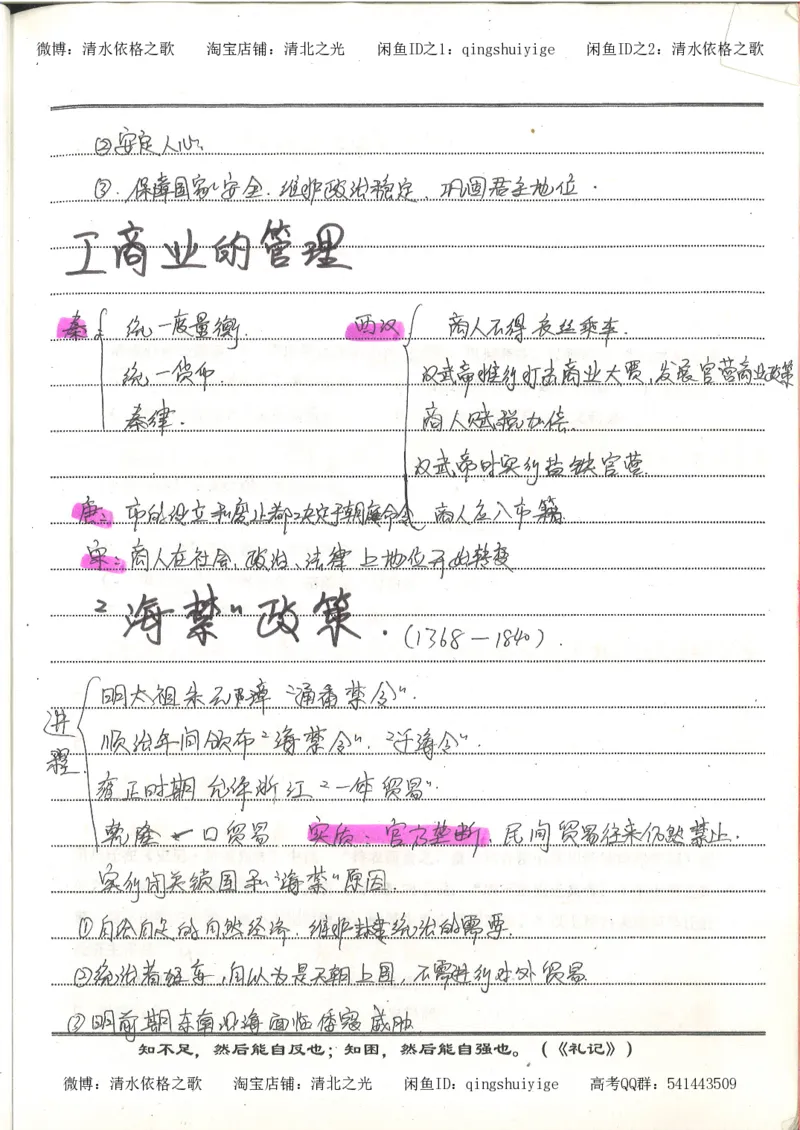 微博：清水依格之歌 淘宝店铺：清北之光 闲鱼ID之1：qingshuiyige 闲鱼ID之2：清水依格之歌
②安定人心.
③.保障国家安全.维护政治稳定、巩固君主地位.
工商业的管理
秦 统一度量衡. 西汉 商人不得衣丝乘车.
统一货币. 汉武帝推行打击商业大贾,发展官营商业政策
秦律. 商人赋税加倍.
汉武帝时实行盐铁官营.
唐: 市的设立和废止都决定于朝廷命令 商人应入市籍.
宋: 商人在社会、政治、法律上地位开始转变
"海禁"政策.(1368—1840).
进程 明太祖朱元璋"通番禁令".
顺治年间颁布"海禁令"."迁海令".
雍正时期 允许浙江"一体贸易".
乾隆 一口贸易 实质:官方垄断,民间贸易往来仍然禁止.
实行闭关锁国和"海禁"原因
①自给自足的自然经济.维护封建统治的需要.
②统治者短弃,自以为是天朝上国,不需进行对外贸易.
③明前期东南沿海面临倭寇威胁.
知不足，然后能自反也；知困，然后能自强也。（《礼记》）
微博：清水依格之歌 淘宝店铺：清北之光 闲鱼ID：qingshuiyige 高考QQ群：541443509